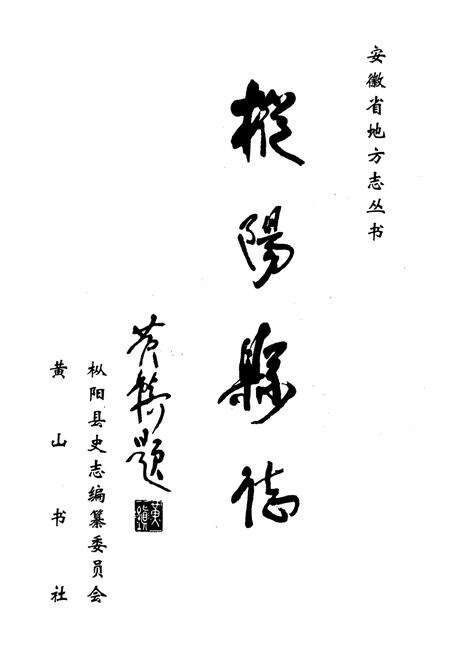 安徽省地方志丛书
樅陽縣誌
黄鎮题
黃鎮
枞阳县史志编纂委员会
黄山书社